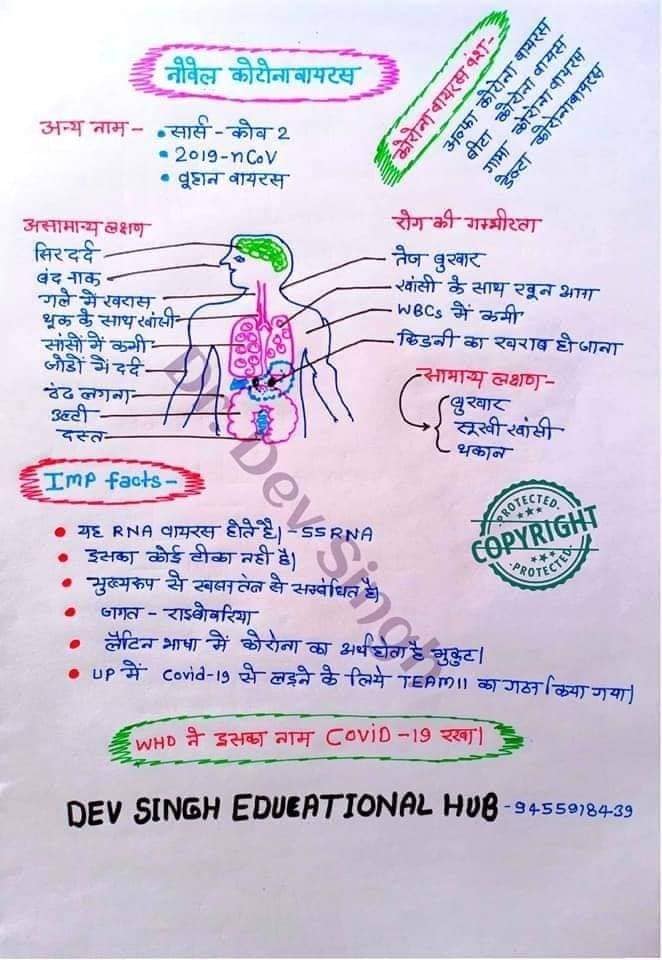 नोवेल कोरोना वायरस
कोरोना वायरस वंश-
अल्फा कोरोना वायरस
बीटा कोरोना वायरस
गामा कोरोना वायरस
डेल्टा कोरोनावायरस
अन्य नाम - • सार्स - कोव 2
• 2019-nCoV
• वूहान वायरस
असामान्य लक्षण
सिरदर्द
बंद नाक
गले में खरास
थूक के साथ खांसी
सांसों में कमी
जोडों में दर्द
ठंढ लगना
उल्टी
दस्त
रोग की गम्भीरता
तेज बुखार
खांसी के साथ खून आना
WBCs में कमी
किडनी का खराब हो जाना
सामान्य लक्षण-
बुखार
सूखी खांसी
थकान
IMP facts-
• यह RNA वायरस होते है। - SSRNA
• इसका कोई टीका नही है।
• मुख्यरूप से श्वसन तंत्र से सम्बंधित है।
• जगत - राइबोवरिया
• लैटिन भाषा में कोरोना का अर्थ होता है मुकुट।
• UP में Covid-19 से लड़ने के लिये TEAM11 का गठन किया गया।
PROTECTED
COPYRIGHT
PROTECTED
WHO ने इसका नाम COVID-19 रखा।
DEV SINGH EDUCATIONAL HUB - 9455918439
Dr. Dev Singh